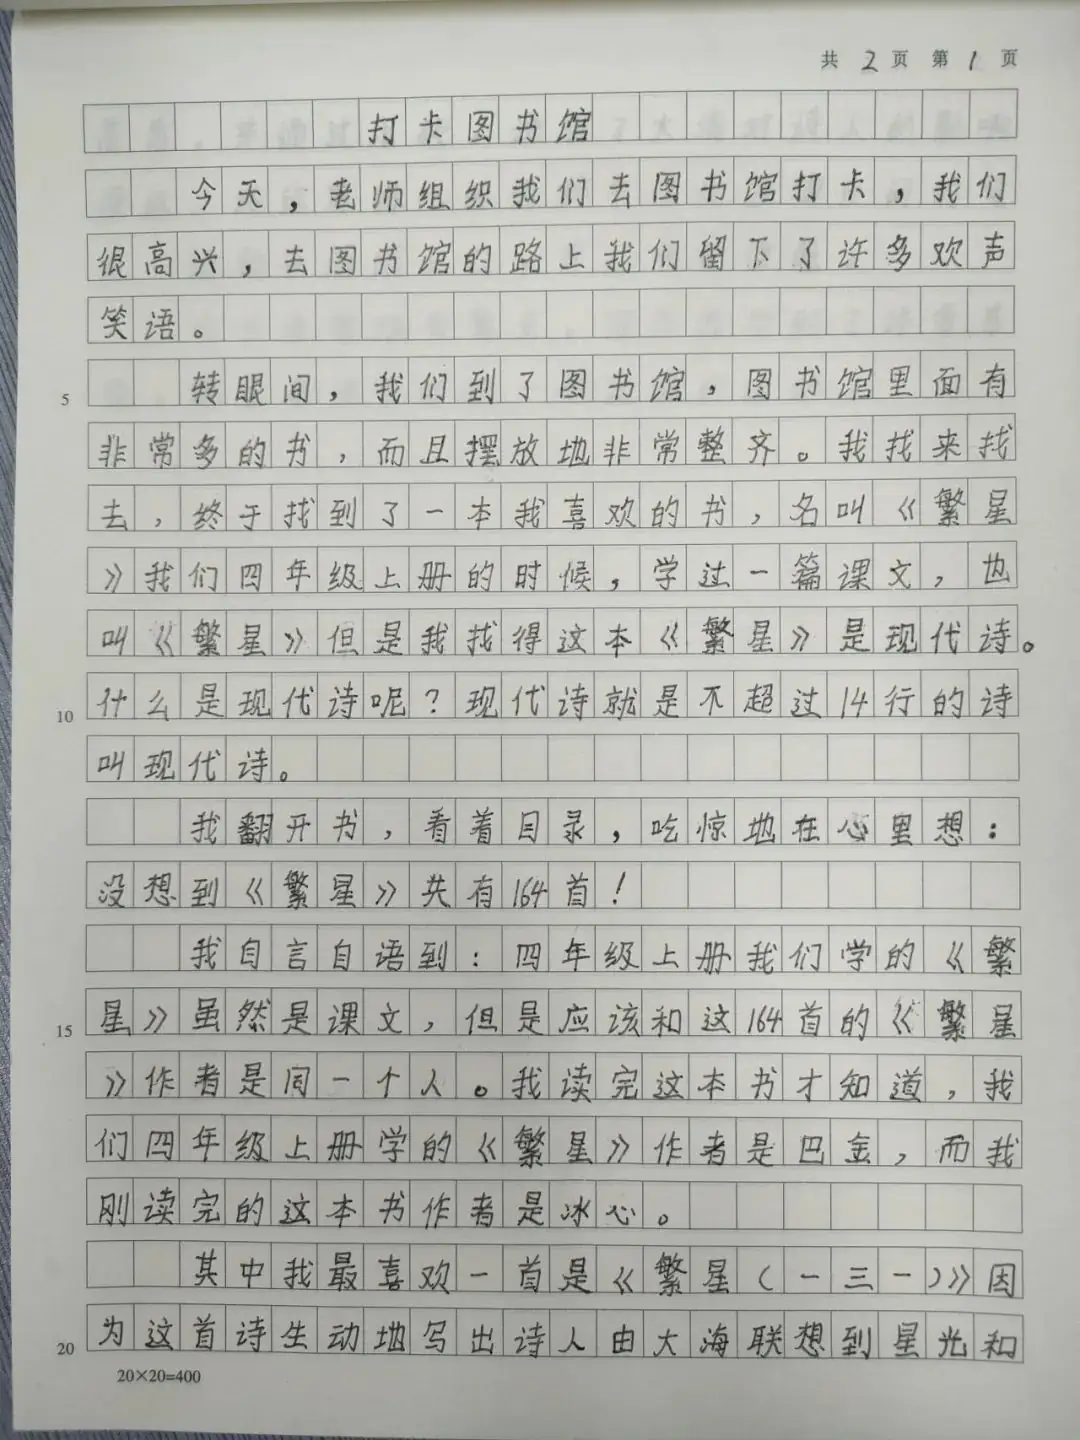 共 2 页 第 1 页
打卡图书馆
今天，老师组织我们去图书馆打卡，我们
很高兴，去图书馆的路上我们留下了许多欢声
笑语。
5 转眼间，我们到了图书馆，图书馆里面有
非常多的书，而且摆放地非常整齐。我找来找
去，终于找到了一本我喜欢的书，名叫《繁星
》我们四年级上册的时候，学过一篇课文，也
叫《繁星》但是我找得这本《繁星》是现代诗。
10 什么是现代诗呢？现代诗就是不超过14行的诗
叫现代诗。
我翻开书，看着目录，吃惊地在心里想：
没想到《繁星》共有164首！
我自言自语到：四年级上册我们学的《繁
15 星》虽然是课文，但是应该和这164首的《繁星
》作者是同一个人。我读完这本书才知道，我
们四年级上册学的《繁星》作者是巴金，而我
刚读完的这本书作者是冰心。
其中我最喜欢一首是《繁星（一三一）》因
20 为这首诗生动地写出诗人由大海联想到星光和
20×20=400